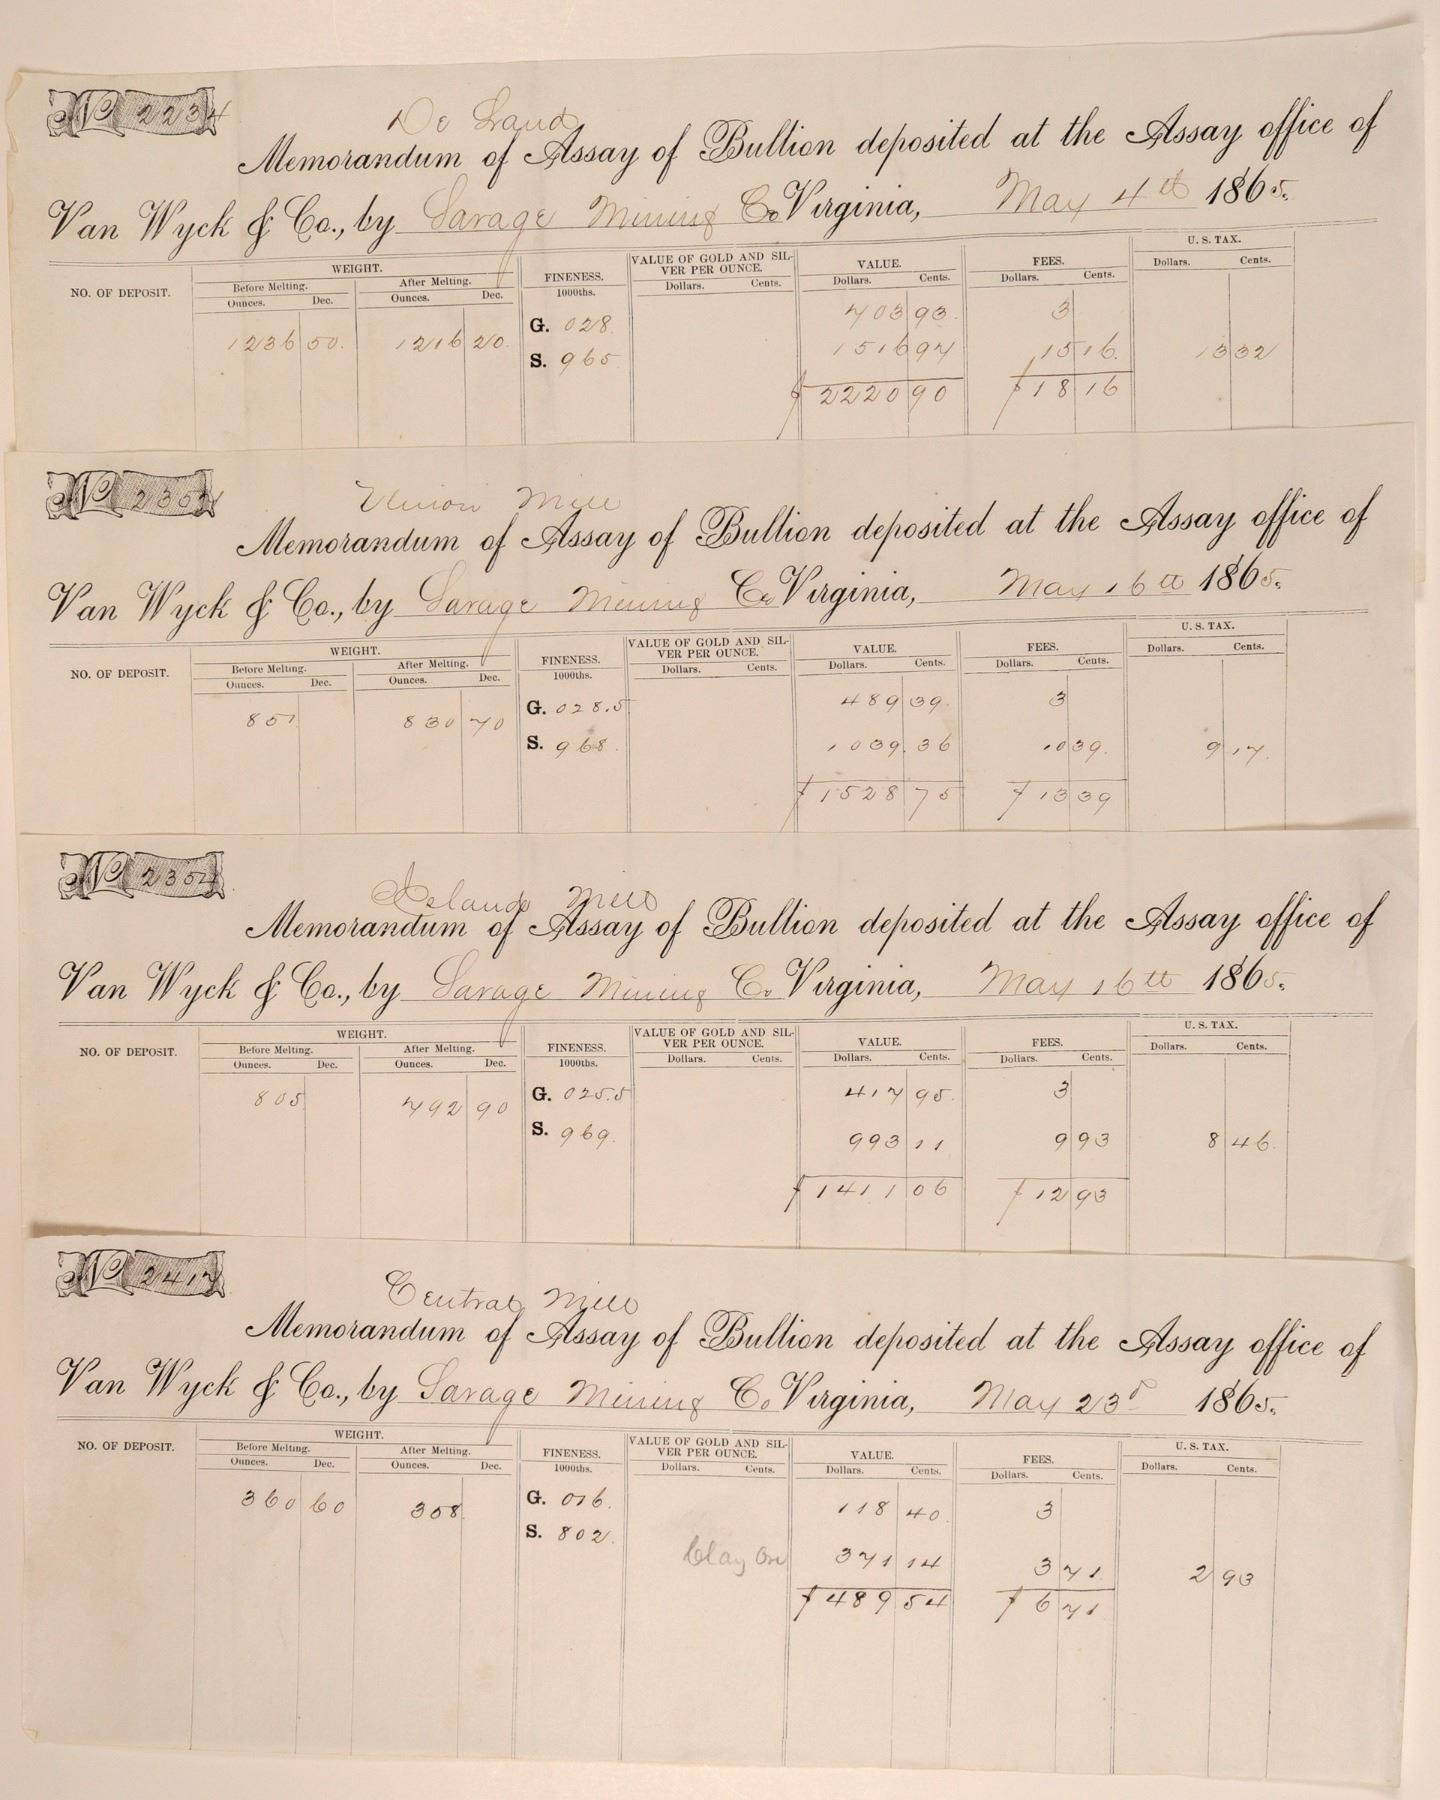 No 2234
De Land
Memorandum of Assay of Bullion deposited at the Assay office of
Van Wyck & Co., by Savage Mining Co Virginia, May 4th 1865.
NO. OF DEPOSIT. WEIGHT. FINENESS. VALUE OF GOLD AND SIL-VER PER OUNCE. VALUE. FEES. U. S. TAX.
Before Melting. After Melting. 1000ths. Dollars. Cents. Dollars. Cents. Dollars. Cents. Dollars. Cents.
Ounces. Dec. Ounces. Dec.
G. 028. 703 93. 3
1236 50. 1216 20. S. 965 1516 97 15 16. 13 32
$ 2220 90 $ 18 16
Union Mill
Memorandum of Assay of Bullion deposited at the Assay office of
Van Wyck & Co., by Savage Mining Co Virginia, May 16th 1865.
NO. OF DEPOSIT. WEIGHT. FINENESS. VALUE OF GOLD AND SIL-VER PER OUNCE. VALUE. FEES. U. S. TAX.
Before Melting. After Melting. 1000ths. Dollars. Cents. Dollars. Cents. Dollars. Cents. Dollars. Cents.
Ounces. Dec. Ounces. Dec.
G. 028.5 489 39. 3
851 830 70 S. 968. 1039.36 10 39. 9 17.
$ 1528 75 $ 13 39
No 2354
Deland Mill
Memorandum of Assay of Bullion deposited at the Assay office of
Van Wyck & Co., by Savage Mining Co Virginia, May 16th 1865.
NO. OF DEPOSIT. WEIGHT. FINENESS. VALUE OF GOLD AND SIL-VER PER OUNCE. VALUE. FEES. U. S. TAX.
Before Melting. After Melting. 1000ths. Dollars. Cents. Dollars. Cents. Dollars. Cents. Dollars. Cents.
Ounces. Dec. Ounces. Dec.
G. 025.5 417 95. 3
805 792 90 S. 969. 993 11 9 93 8 46.
$ 1411 06 $ 12 93
No 2417
Central Mill
Memorandum of Assay of Bullion deposited at the Assay office of
Van Wyck & Co., by Savage Mining Co Virginia, May 23d 1865.
NO. OF DEPOSIT. WEIGHT. FINENESS. VALUE OF GOLD AND SIL-VER PER OUNCE. VALUE. FEES. U. S. TAX.
Before Melting. After Melting. 1000ths. Dollars. Cents. Dollars. Cents. Dollars. Cents. Dollars. Cents.
Ounces. Dec. Ounces. Dec.
360 60 308. G. 016. 118 40. 3
S. 802. Clay Ore 371 14 3 71 2 93
$ 489 54 $ 6 71